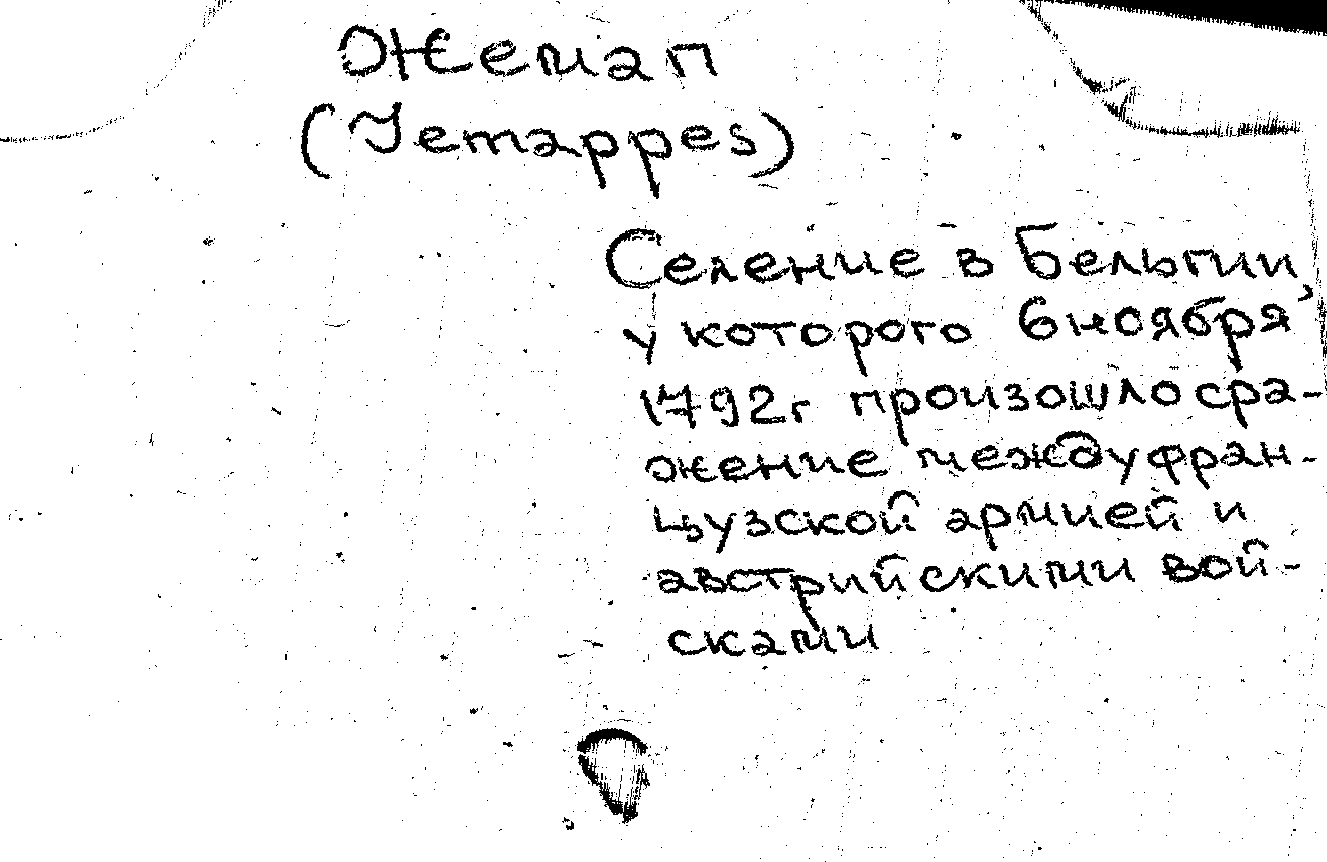 Жемап
(Jemappes)
Селение в Бельгии,
у которого 6 ноября
1792г произошло сра-
жение между фран-
цузской армией и
австрийскими вой-
сками